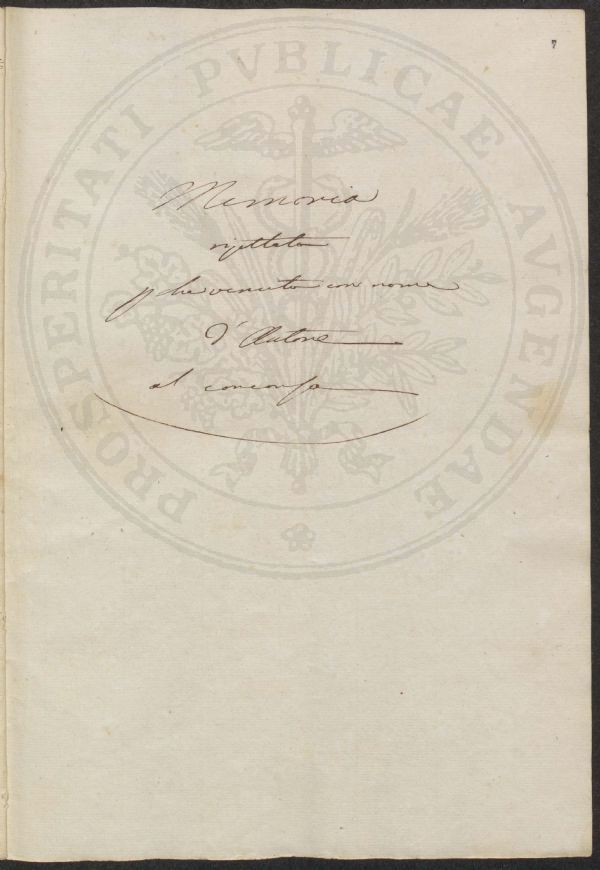 7
PROSPERITATI PVBLICAE AVGENDAE
Memoria
rigettata
venuta con nome
d'Autore
al concorso